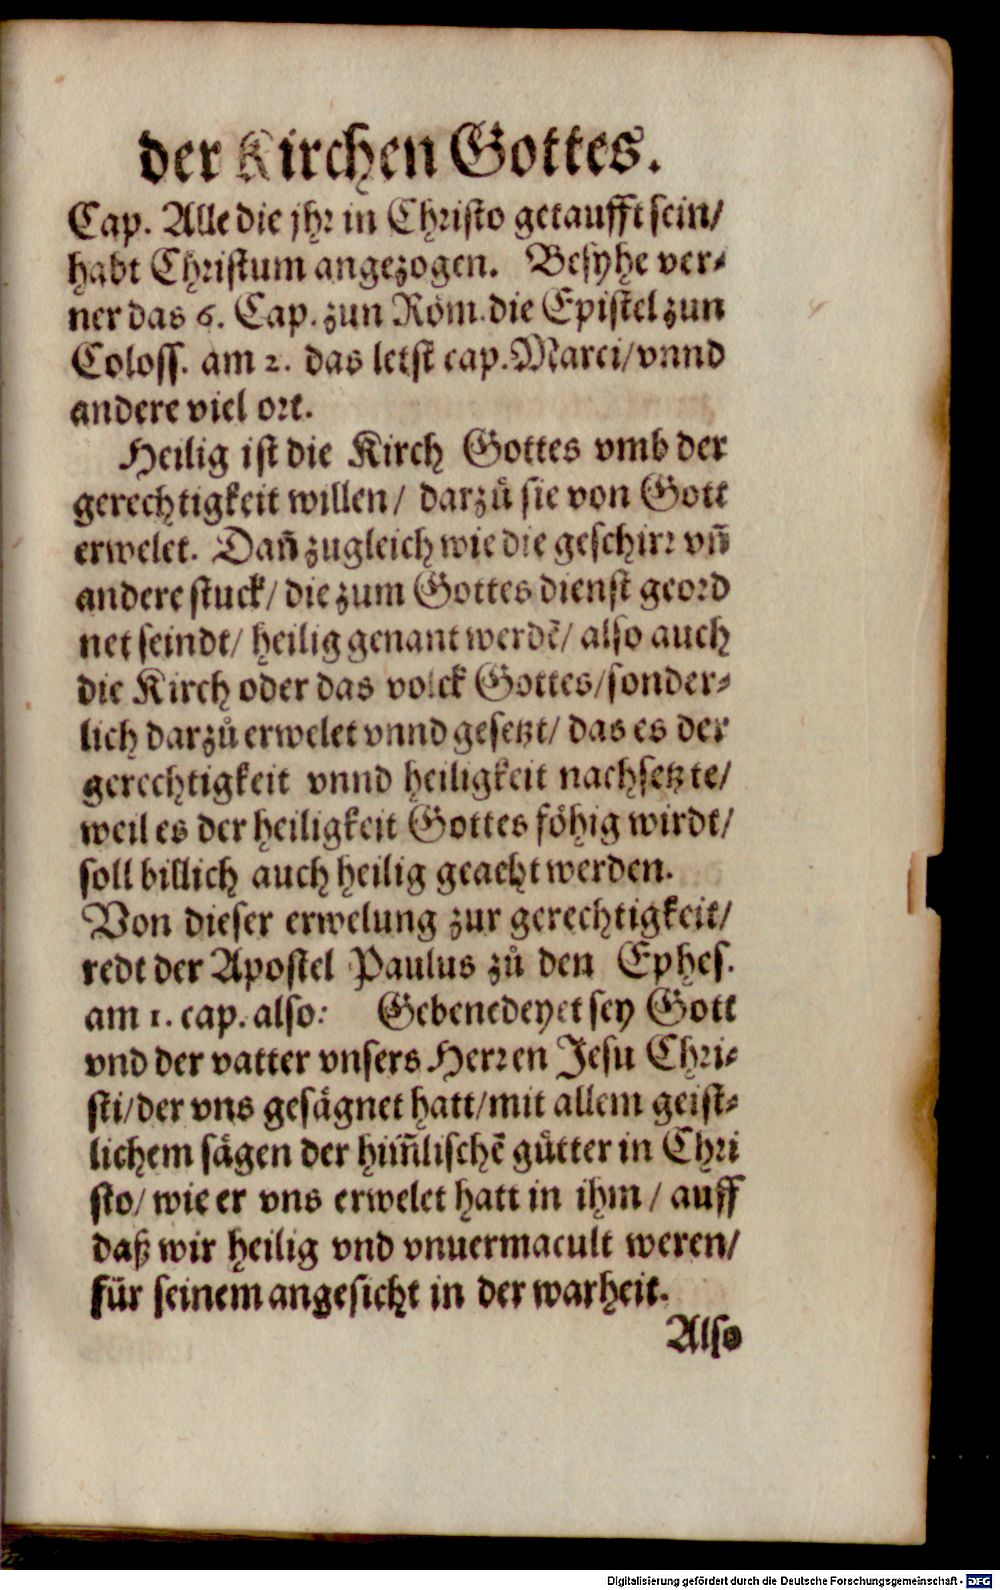 der Kirchen Gottes.
Cap. Alle die jhr in Christo getaufft sein/
habt Christum angezogen. Besyhe ver-
ner das 6. Cap. zun Röm. die Epistel zun
Coloss. am 2. das letst cap. Marci/ vnnd
andere viel ort.
Heilig ist die Kirch Gottes vmb der
gerechtigkeit willen/ darzů sie von Gott
erwelet. Dañ zugleich wie die geschirr vñ
andere stuck/ die zum Gottes dienst geord
net seindt/ heilig genant werdẽ/ also auch
die Kirch oder das volck Gottes/ sonder-
lich darzů erwelet vnnd gesetzt/ das es der
gerechtigkeit vnnd heiligkeit nachsetzte/
weil es der heiligkeit Gottes föhig wirdt/
soll billich auch heilig geacht werden.
Von dieser erwelung zur gerechtigkeit/
redt der Apostel Paulus zů den Ephes.
am 1. cap. also: Gebenedeyet sey Gott
vnd der vatter vnsers Herren Jesu Chri-
sti/ der vns gesägnet hatt/ mit allem geist-
lichem sägen der him̃lischẽ gütter in Chri
sto/ wie er vns erwelet hatt in ihm/ auff
daß wir heilig vnd vnuermacult weren/
für seinem angesicht in der warheit.
Also
Digitalisierung gefördert durch die Deutsche Forschungsgemeinschaft - DFG